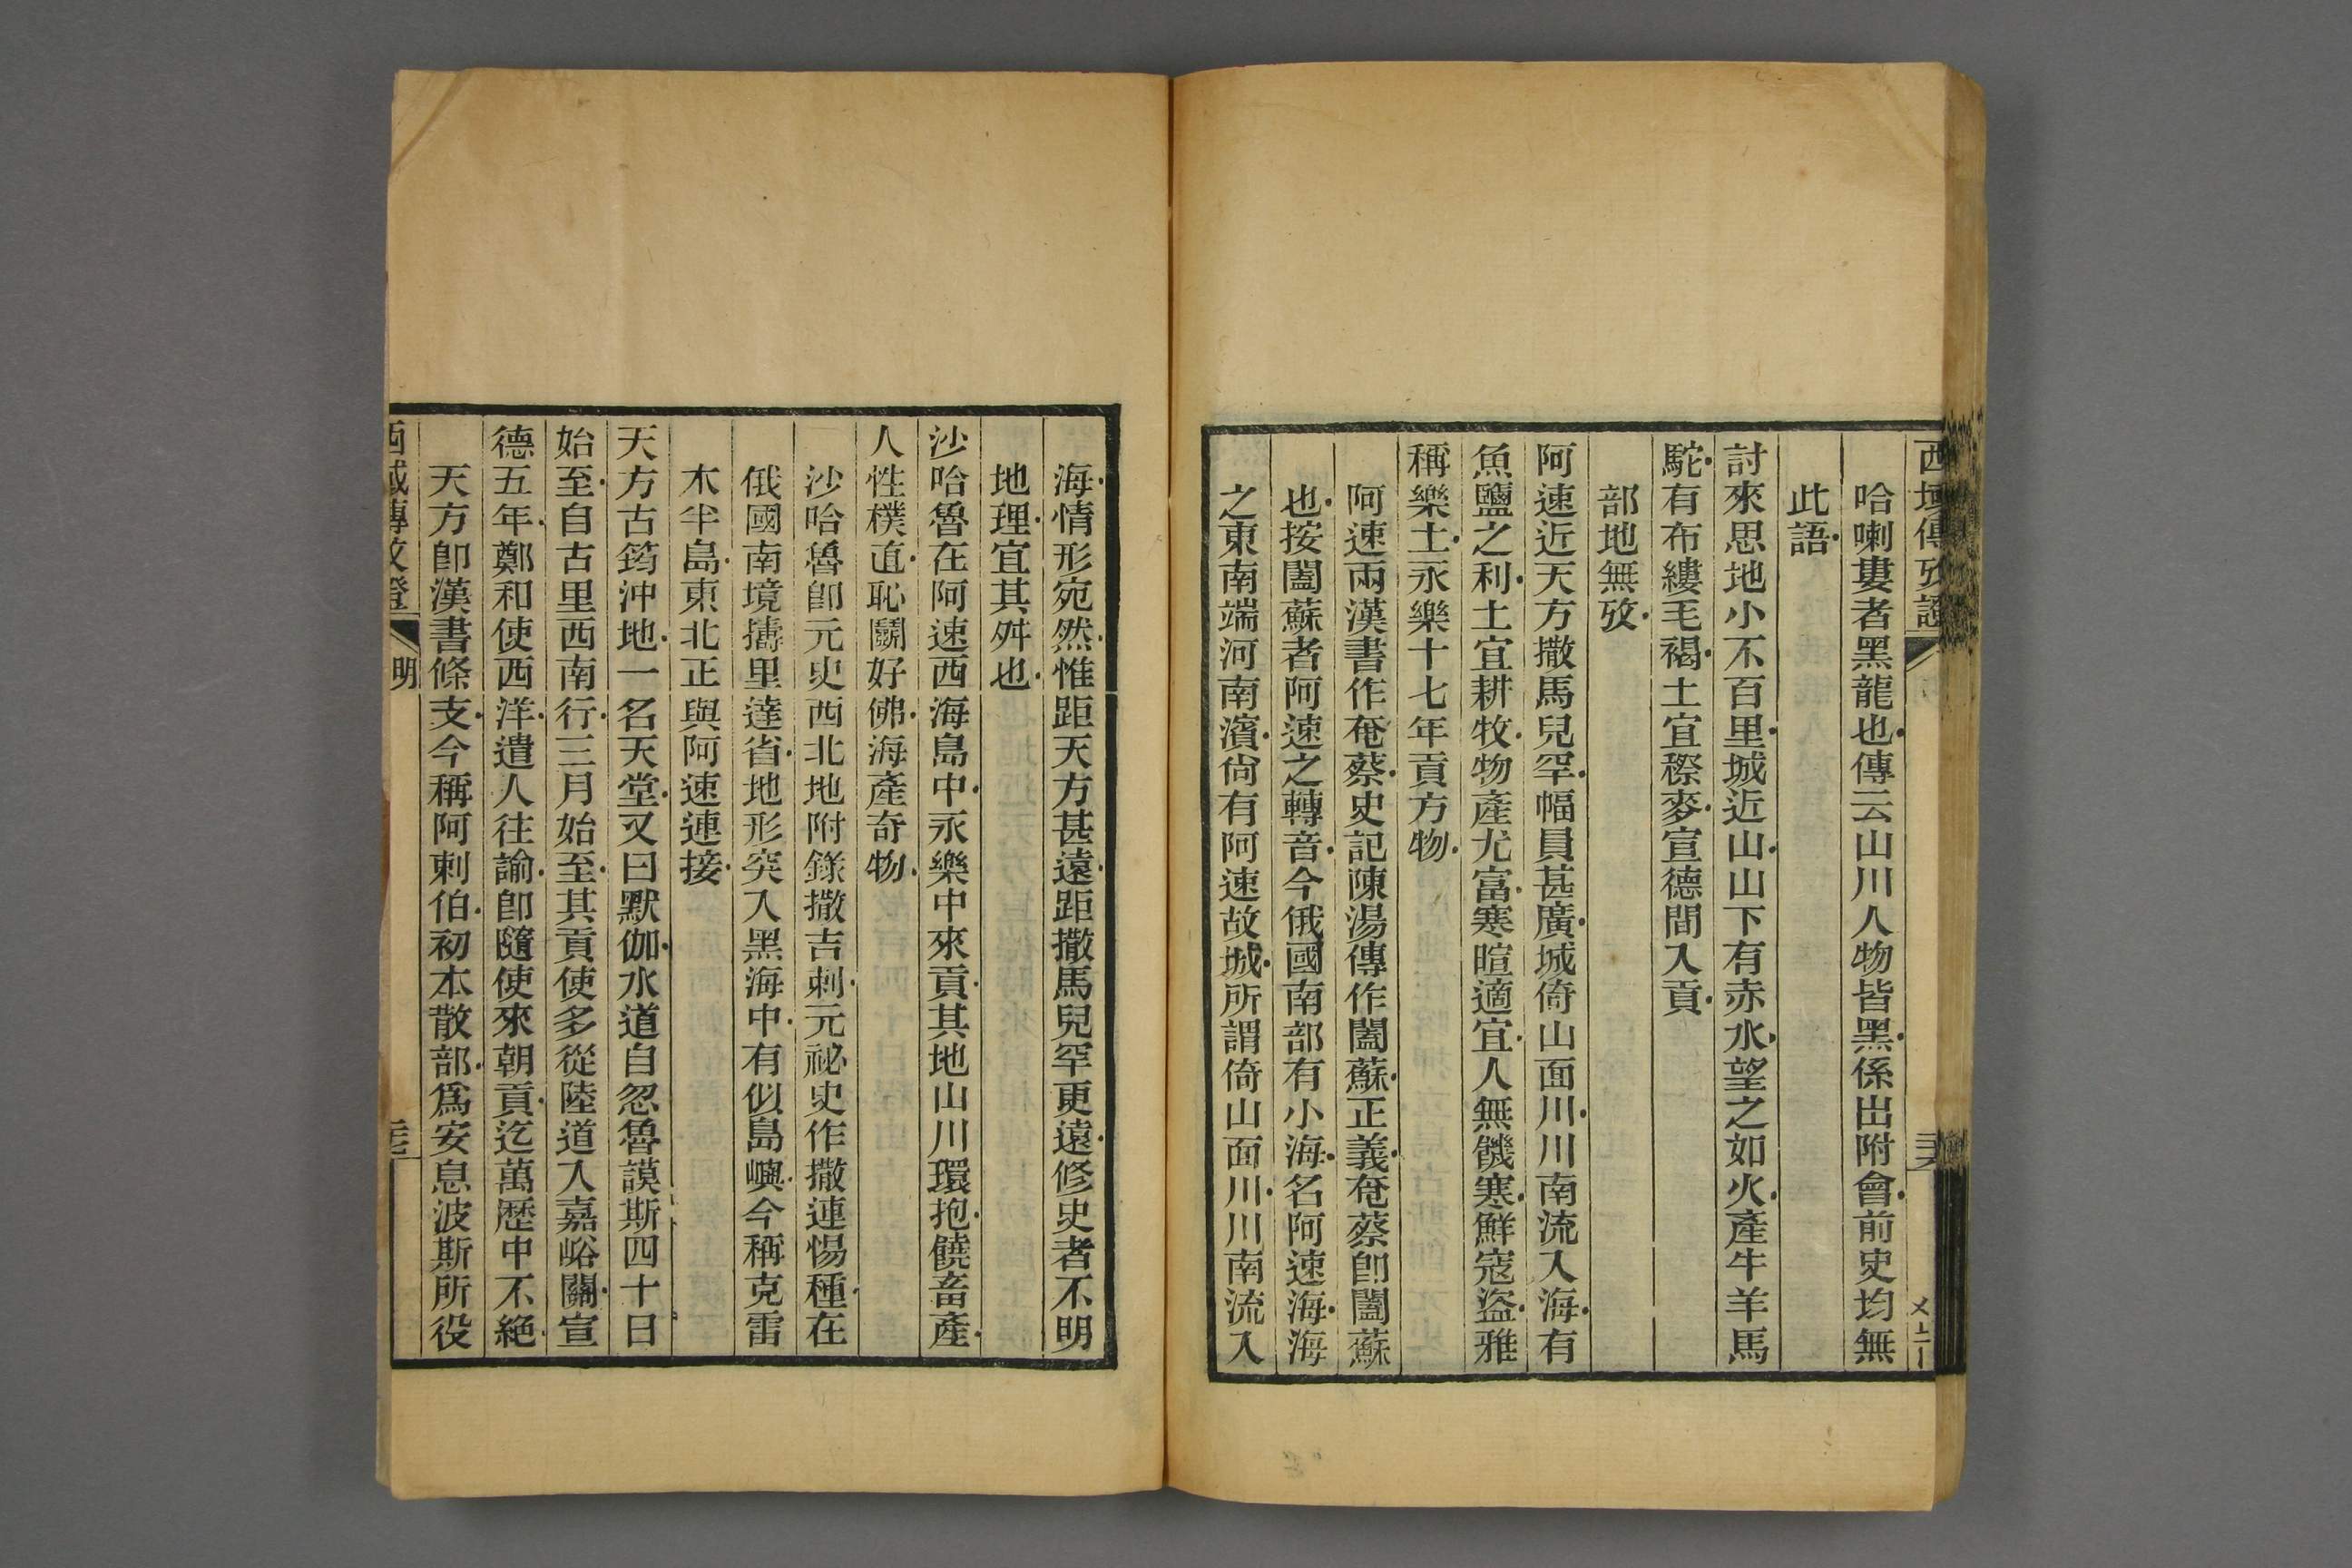 西域傳攷證
哈喇婁者黑龍也傳云山川人物皆黑係出附會前史均無
此語
討來思地小不百里城近山山下有赤水望之如火產牛羊馬
駝有布縷毛褐土宜穄麥宣德間入貢
部地無攷
阿速近天方撒馬兒罕幅員甚廣城倚山面川川南流入海有
魚鹽之利土宜耕牧物產尤富寒暄適宜人無饑寒鮮寇盜雅
稱樂土永樂十七年貢方物
阿速兩漢書作奄蔡史記陳湯傳作闔蘇正義奄蔡卽闔蘇
也按闔蘇者阿速之轉音今俄國南部有小海名阿速海海
之東南端河南濱尙有阿速故城所謂倚山面川川南流入
海情形宛然惟距天方甚遠距撒馬兒罕更遠修史者不明
地理宜其舛也
沙哈魯在阿速西海島中永樂中來貢其地山川環抱饒畜產
人性樸直恥鬬好佛海產奇物
沙哈魯卽元史西北地附錄撒吉剌元祕史作撒連惕種在
俄國南境擣里達省地形突入黑海中有似島嶼今稱克雷
木半島東北正與阿速連接
天方古筠沖地一名天堂又曰默伽水道自忽魯謨斯四十日
始至自古里西南行三月始至其貢使多從陸道入嘉峪關宣
德五年鄭和使西洋遣人往諭卽隨使來朝貢迄萬歷中不絕
天方卽漢書條支今稱阿剌伯初本散部爲安息波斯所役
西域傳攷證 明